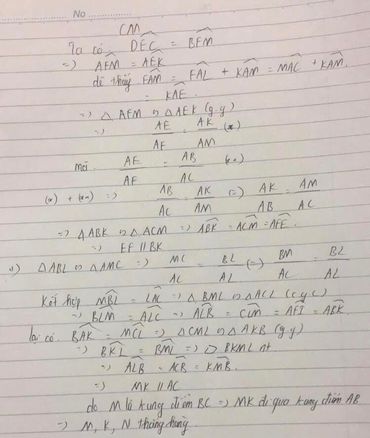 No
CM
Ta có DEC = BFM
=) AFM = AEK
dễ thấy FAM = FAL + KAM = MAC + KAM
= KAE
=) △ AFM ∽ △ AEK (g.g)
=) AE/AF = AK/AM (*)
mà AE/AF = AB/AC (**)
(*) + (**) =) AB/AC = AK/AM (=) AK/AB = AM/AC
=) △ ABK ∽ △ ACM =) ABK = ACM = AFE
=) EF // BK
△ ABL ∽ △ AMC =) MC/AC = BL/AL (=) BM/AC = BL/AL
Kết hợp MBL = LAC =) △ BML ∽ △ ACL (c.g.c)
=) BLM = ALC =) ALB = CLM = AFI = ABK
lại có BAK = MCL =) △ CML ∽ △ AKB (g.g)
=) BKL = BML =) BKML nt
=) ALB = ACB = KMB
=) MK // AC
do M là trung điểm BC =) MK đi qua trung điểm AB
=) M, K, N thẳng hàng